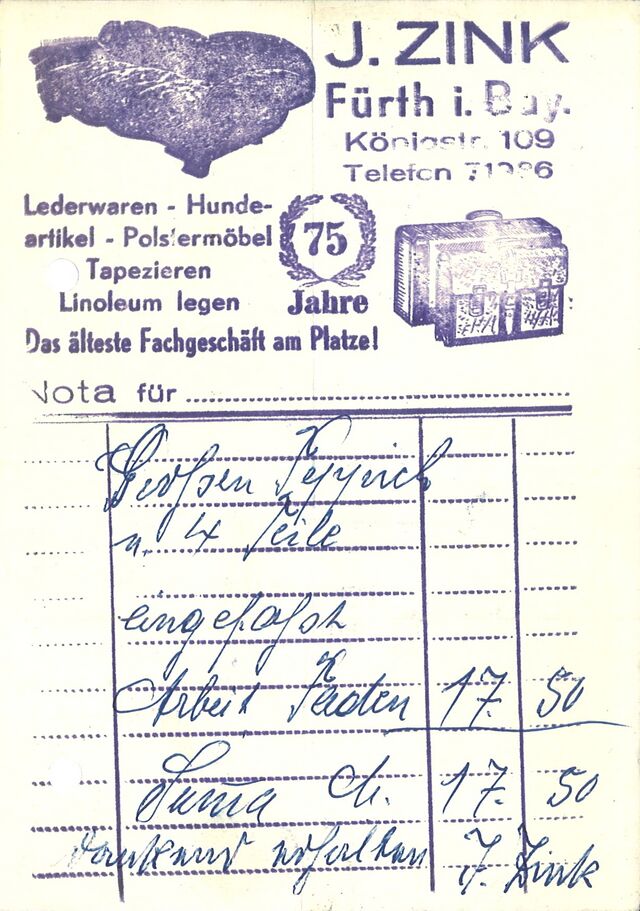 J. ZINK
Fürth i. Bay.
Königstr. 109
Telefon 71986
Lederwaren - Hunde-
artikel - Polstermöbel
Tapezieren
Linoleum legen
75
Jahre
Das älteste Fachgeschäft am Platze!
Nota für
Großen Teppich
u. 4 Teile
eingefaßt
Arbeit Faden 17. 50
Suma 17. 50
dankend erhalten J. Zink